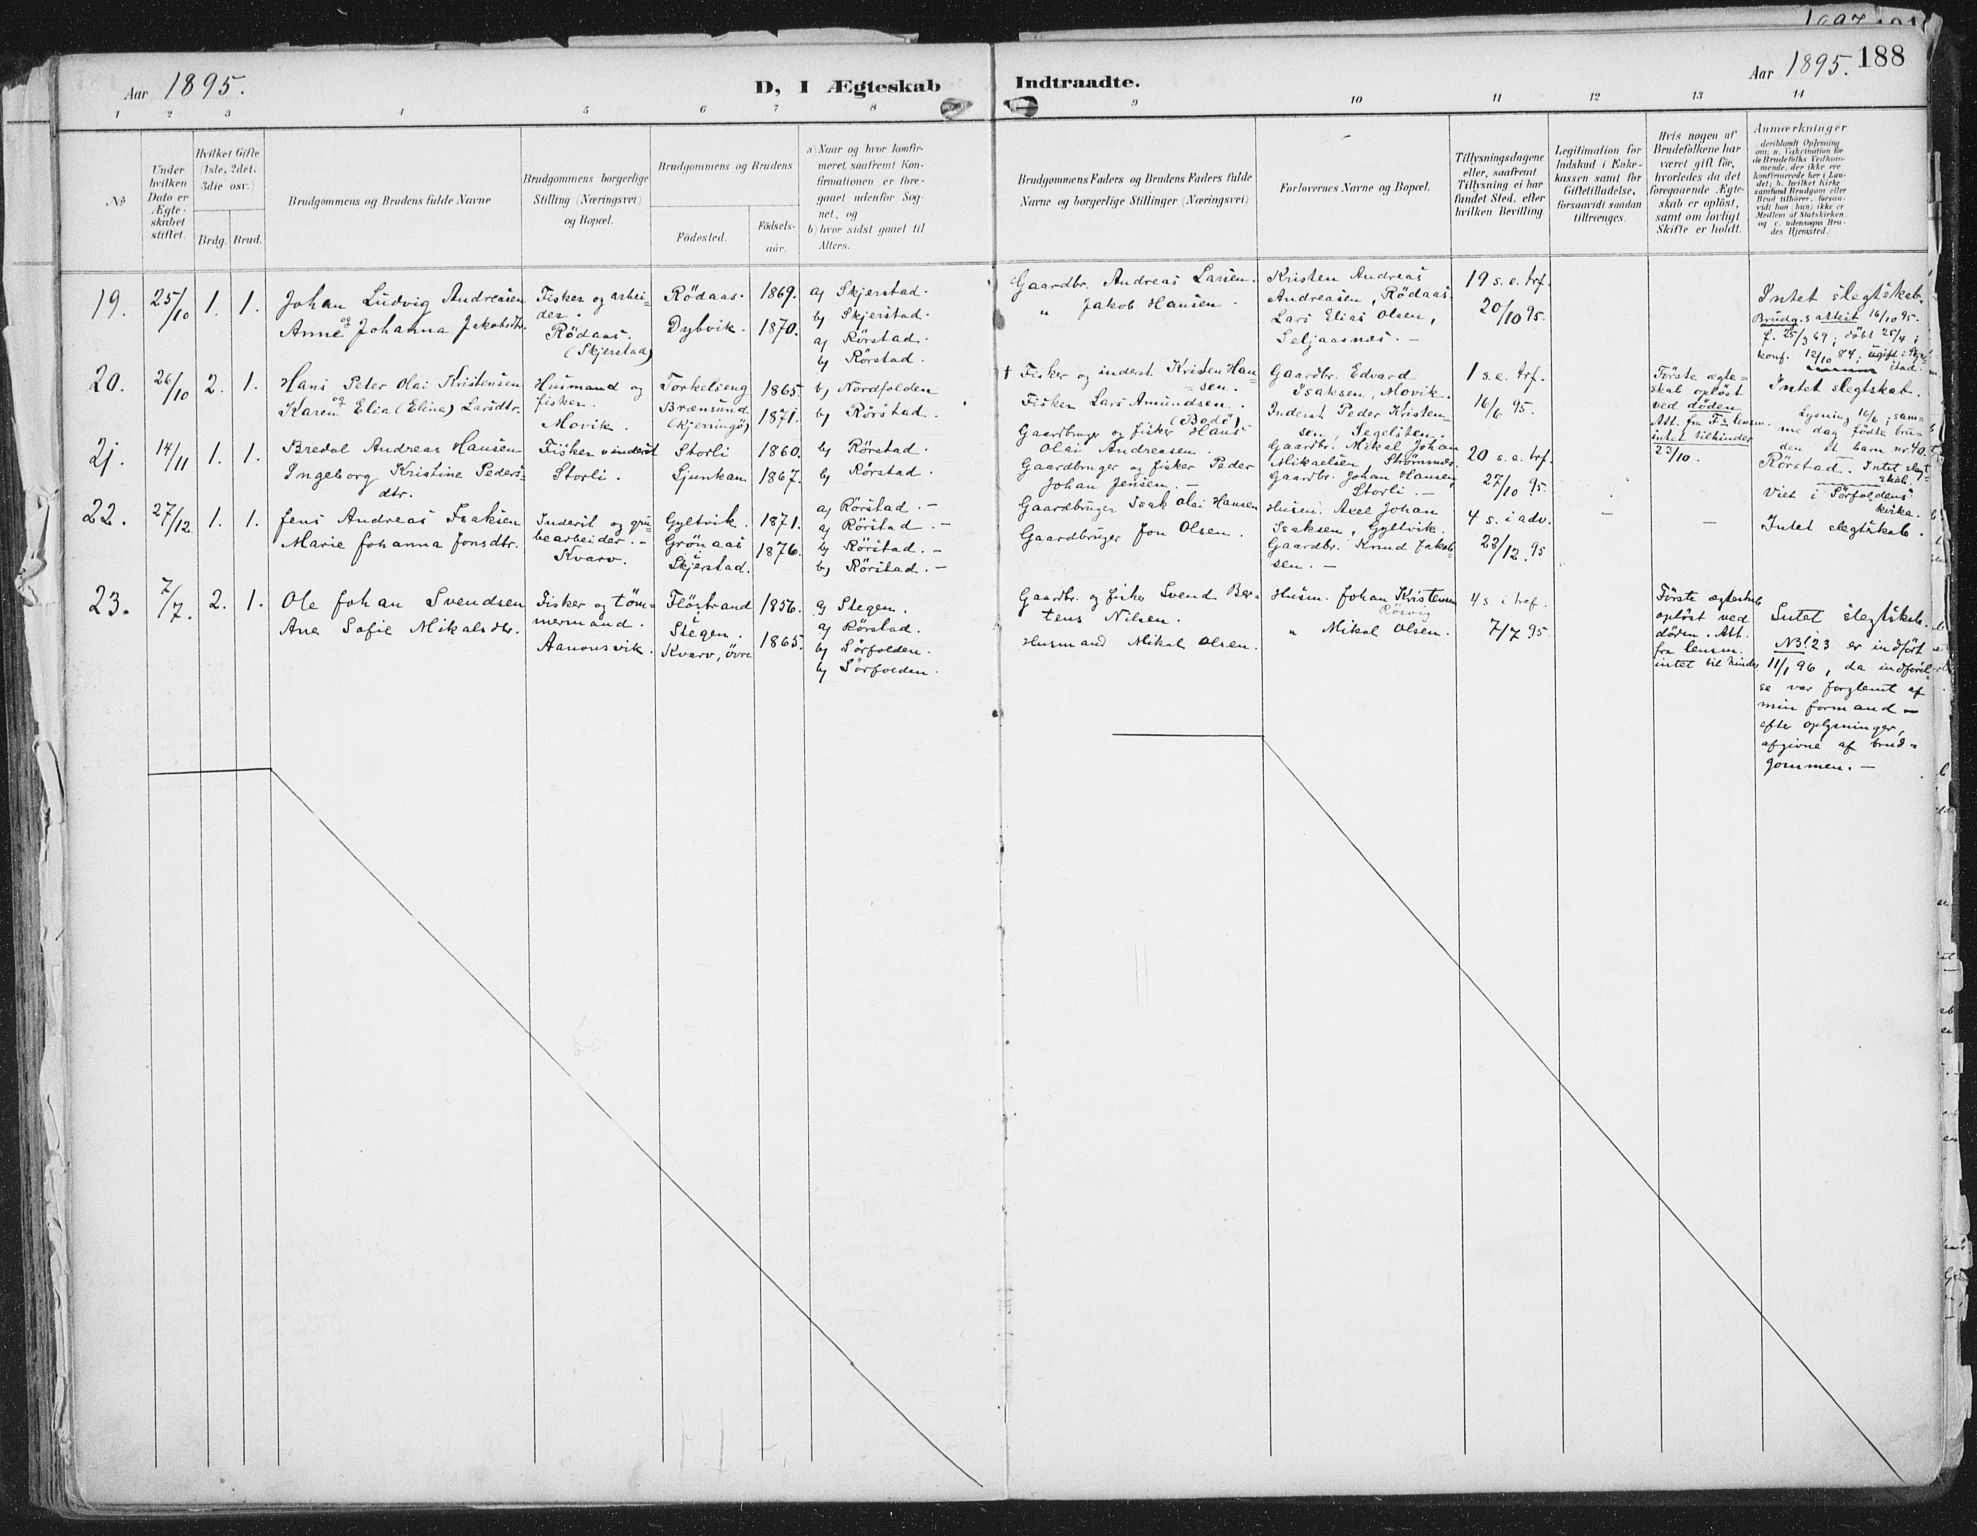 Aar 1895.
D, I Ægteskab
Indtraadte.
Aar 1895. 188
1 2 3 4 5 6 7 8 9 10 11 12 13 14
№
Under
hvilken
Dato er
Ægte-
skabet
stiftet.
Hvilket Gifte
(1ste, 2det,
3die osv.)
Brdg. Brud.
Brudgommens og Brudens fulde Navne
Brudgommens borgerlige
Stilling (Næringsvei)
og Bopæl.
Brudgommens og Brudens
Fødested.
Fødsels-
aar.
a) Naar og hvor konfir-
meret, saafremt Kon-
firmationen er fore-
gaaet udenfor Sog-
net, og
b) hvor sidst gaaet til
Alters.
Brudgommens Faders og Brudens Faders fulde
Navne og borgerlige Stillinger (Næringsvei)
Forlovernes Navne og Bopæl.
Tillysningsdagene
eller, saafremt
Tillysning ei har
fundet Sted, efter
hvilken Bevilling.
Legitimation for
Indskud i Enke-
kassen samt for
Giftetilladelse,
forsaavidt saadan
tiltrænges.
Hvis nogen af
Brudefolkene har
været gift før,
hvorledes da det
foregaaende Ægte-
skab er opløst,
samt om lovligt
Skifte er holdt.
Anmærkninger
deriblandt Oplysning
om: a. Vakcination for
de Brudefolks Vedkom-
mende, der ikke ere
konfirmerede her i Lan-
det; b. hvilket Kirke
samfund Brudgom eller
Brud tilhører, forsaa-
vidt han (hun) ikke er
Medlem af Statskirken,
og c. udensogns Bru-
des Hjemsted.
19. 25/10 1. 1.
Johan Ludvig Andreasen
og
Anne Johanna Jakobsdtr.
Fisker og arbei-
der.
Rödaas.
(Skjerstad)
Rödaas. 1869.
Dybvik. 1870.
a) Skjerstad.
b) Skjerstad.
a) Rörstad.
b) Rörstad.
Gaardbr. Andreas Larsen.
" Jakob Hansen.
Kristen Andreas
Andreasen, Rödaas
Lars Elias Olsen,
Seljaasnes. -
19 s. e. trf.
20/10 95.
Intet slegtskab.
Brudg.s attest 16/10 95.
f. 25/3 69; döbt 25/4 i
konf. 12/10 84; ugift
20. 26/10 2. 1.
Hans Peter Olai Kristensen
og
Karen Elia (Eline) Larsdtr.
Husmand og
fisker.
Movik.
Torkelseng 1865.
Brænsund 1871.
(Kjerringö)
b) Nordfolden
b) Rörstad.
† Fisker og inderst Kristen Han-
sen.
Fisker Lars Amundsen.
(Bodö)
Gaardbr. Edvard
Isaksen, Movik.
Inderst Peder Kristen-
sen, Segelsten.
1 s. e. trf.
16/6 95.
Förste ægte-
skab oplöst
ved döden.
Att. fra Fr. lensm.
intet tilhinder
23/10.
Intet slegtskab.
Lysning 16/6; sam-
me dag födte bru-
den et barn nr. 40.
21. 14/11 1. 1.
Bredal Andreas Hansen
Ingeborg Kristine Peders-
dtr.
Fisker o inderst
Storli.
Storli 1860.
Ljunkan 1867.
b) Rörstad.
b) Rörstad.
Gaardbruger og fisker Hans
Olai Andreasen.
Gaardbruger og fisker Peder
Johan Jensen. -
Gaardbr. Mikal Johan
Mikaelsen Strømsnes.
Gaardbr. Johan Hansen,
Storli. -
20 s. e. trf.
27/10 95.
Rörstad. Intet slegt-
skab.
Viet i Sörfoldens
kirke.
22. 27/12. 1. 1.
Jens Andreas Isaksen
Marie Johanna Jonsdtr.
Inderst og gru-
bearbeider. -
Kvarv.
Gyltvik. 1871.
Grönaas 1876.
Skjerstad.
a) Rörstad. -
a) Rörstad. -
b) Rörstad. -
b) Rörstad. -
Gaardbruger Isak Olai Hansen
Gaardbruger Jon Olsen.
Husm. Axel Johan
Isaksen, Gyltvik.
Gaardbr. Knud Jakob-
sen. -
4 s. i adv.
22/12. 95
-
-
Intet slegtskab.
23. 7/7. 2. 1.
Ole Johan Svendsen
Ane Sofie Mikalsdtr.
Fisker og töm-
mermand.
Aanonsvik.
Flöstrand 1856.
Stegen.
Kvarv, övre 1865.
a) Stegen.
a) Rörstad.
b) Sörfolden.
b) Sörfolden.
Gaardbr. og fisker Svend Ber-
tens Nilsen.
Husmand Mikal Olsen.
Husm. Johan Kristensen
Rösvig
" Mikal Olsen.
4 s. i tref.
7/7 95.
Förste ægteskab
oplöst ved
döden. Att.
fra lensm.
intet til hinder
Intet slegtskab.
NB! 23 er indfört
11/1 96, da indförel-
se var forglemt af
min formand -
efter oplysninger,
afgivne af brud-
gommen. -